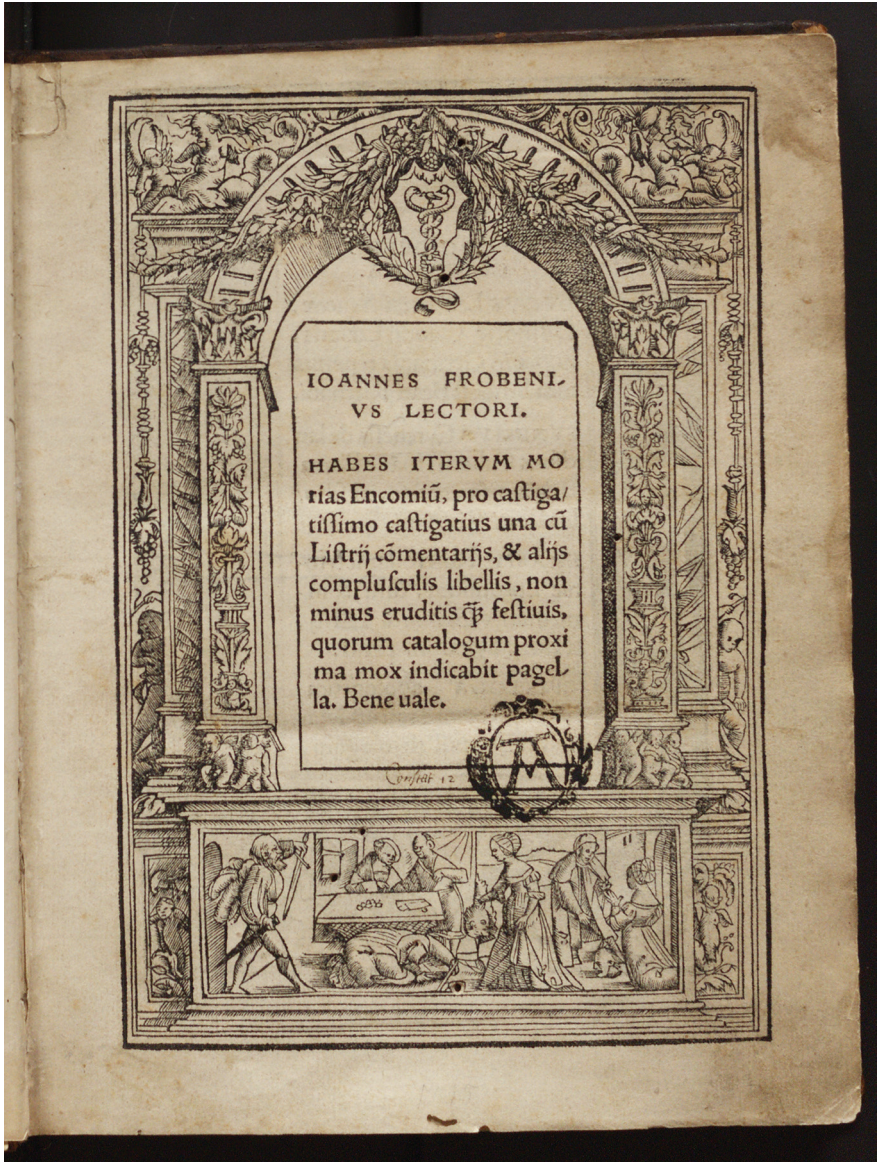 IOANNES FROBENI-
VS LECTORI.
HABES ITERVM MO
rias Encomiũ, pro caſtiga/
tiſſimo caſtigatius una cũ
Liſtrij cõmentarijs, & alijs
compluſculis libellis, non
minus eruditis ꝗ̃ꝫ feſtiuis,
quorum catalogum proxi
ma mox indicabit pagel-
la. Bene uale.